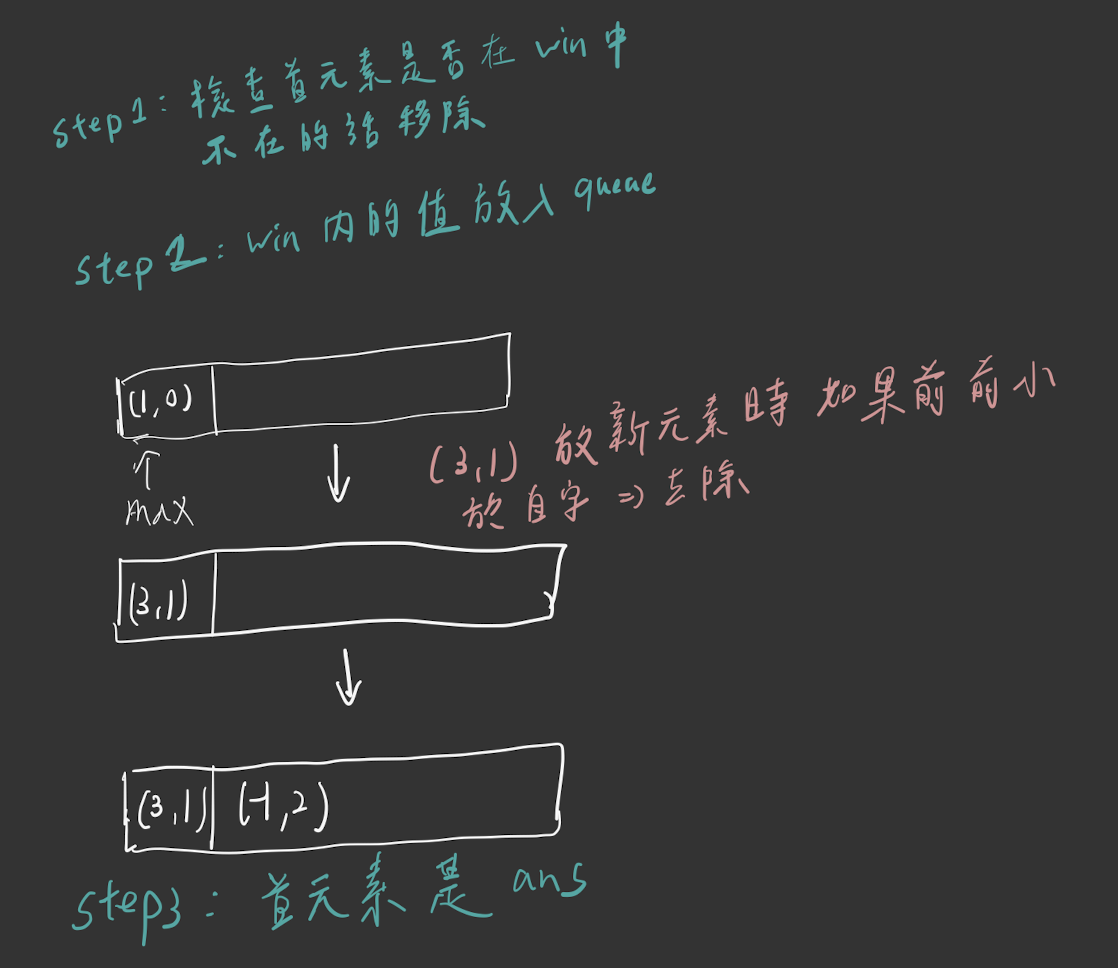 step1：檢查首元素是否在 win 中
不在的話移除
step2：win 內的值放入 queue
(1,0)
↑
max
↓
(3,1) 放新元素時如果前前小
於自字 ⇒ 去除
(3,1)
↓
(3,1) (-1,2)
step3：首元素是 ans